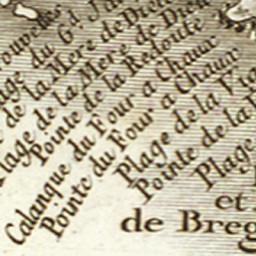 Plage du Gd
de la Mere de Dieu
Plage de la Mere de Dieu
Pointe de la Redoute
Calanque du Four a Chaux
Pointe du Four a Chaux
Plage de la
Pointe de la
Plage
et
de Breg